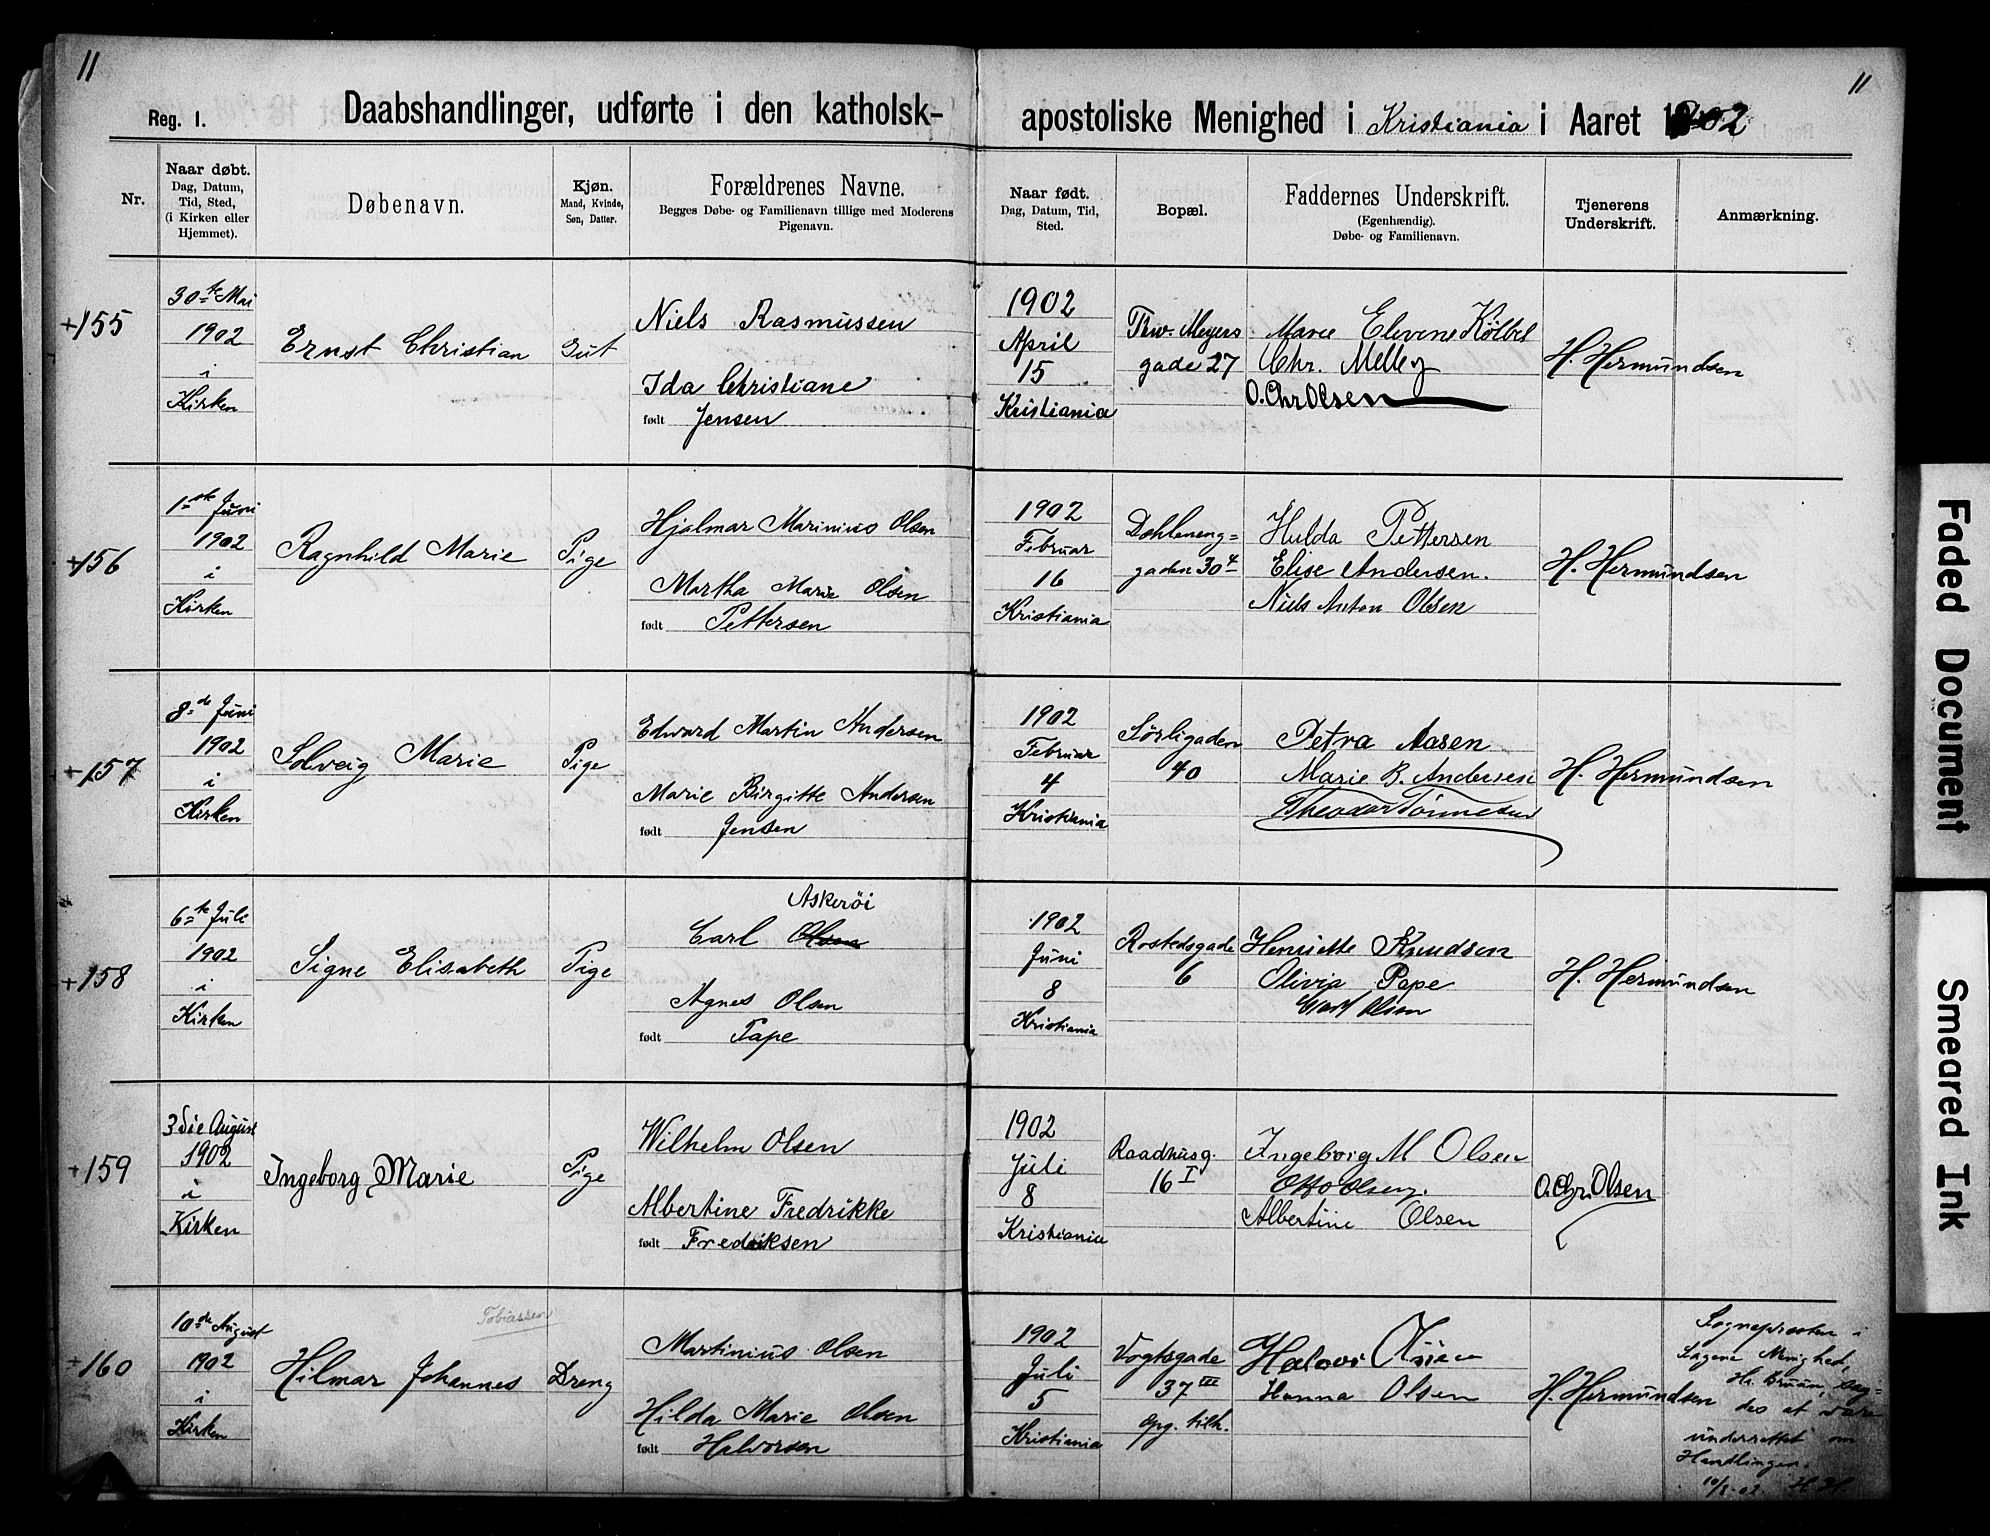 11
11
Reg. 1.
Daabshandlinger, udførte i den katholsk-
apostoliske Menighed i Kristiania i Aaret 1902
Nr.
Naar døbt.
Dag, Datum,
Tid, Sted,
(i Kirken eller
Hjemmet).
Døbenavn.
Kjøn.
Mand, Kvinde,
Søn, Datter.
Forældrenes Navne.
Begges Døbe- og Familienavn tillige med Moderens
Pigenavn.
Naar født.
Dag, Datum, Tid,
Sted.
Bopæl.
Faddernes Underskrift.
(Egenhændig).
Døbe- og Familienavn.
Tjenerens
Underskrift.
Anmærkning.
+155
30te Mai
1902
i
Kirken
Ernst Christian
Gut
Niels Rasmussen
Ida Christiane
født Jensen
1902
April
15
Kristiania
Thv. Meyers
gade 27
Marie Elevine Kølbel
Chr. Melley
O. Chr Olsen
H. Hermundsen
+156
1ste Juni
1902
i
Kirken
Ragnhild Marie
Pige
Hjalmar Marinius Olsen
Martha Marie Olsen
født Pettersen
1902
Februar
16
Kristiania
Dahleneng=
gaden 30 4
Hulda Pettersen
Elise Andersen.
Niels Anton Olsen
H. Hermundsen
+157
8de Juni
1902
i
Kirken
Solveig Marie
Pige
Edward Martin Andersen
Marie Birgitte Andersen
født Jensen
1902
Februar
4
Kristiania
Sørligaden
40
Petra Aasen
Marie B. Andersen
Theodor Tønnesen
H. Hermundsen
+158
6te Juli
1902
i
Kirken
Signe Elisabeth
Pige
Askerøi
Carl Olsen
Agnes Olsen
født Pape
1902
Juni
8
Kristiania
Rostedsgade
6
Henriette Knudsen
Olivia Pape
Carl Olsen
H. Hermundsen
+159
3die August
1902
i
Kirken
Ingeborg Marie
Pige
Wilhelm Olsen
Albertine Fredrikke
født Fredriksen
1902
Juli
8
Kristiania
Raadhusg.
16 I
Ingeborg M Olsen
Otto Olsen.
Albertine Olsen
O. Chr. Olsen
+160
10de August
1902
i
Kirken
Tobiassen
Hilmar Johannes
Dreng
Martinius Olsen
Hilda Marie Olsen
født Halvorsen
1902
Juli
5
Kristiania
Vogtsgade
37 III
opg. tilh.
Halvor Olsen
Hanna Olsen
H. Hermundsen
Sognepræsten i
Sagene Menighed,
Hr. Bruun, sag=
des at var
underrettet om
Handlingen.
10/8-02. H. H.
Faded Document
Smeared Ink